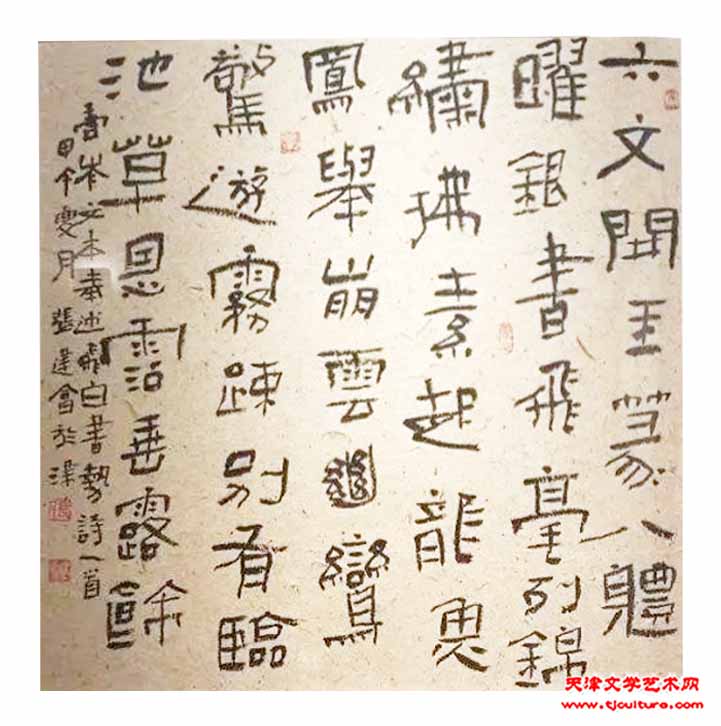 六文開玉篆八體
曜銀書飛毫列錦
繡拂素起龍魚
鳳舉崩雲絕鸞
驚遊霧疎別有臨
池草恩霑垂露餘
書岑文本奉述飛白書勢詩一首
甲午夏月張建會於津
天津文学艺术网
www.tjculture.com